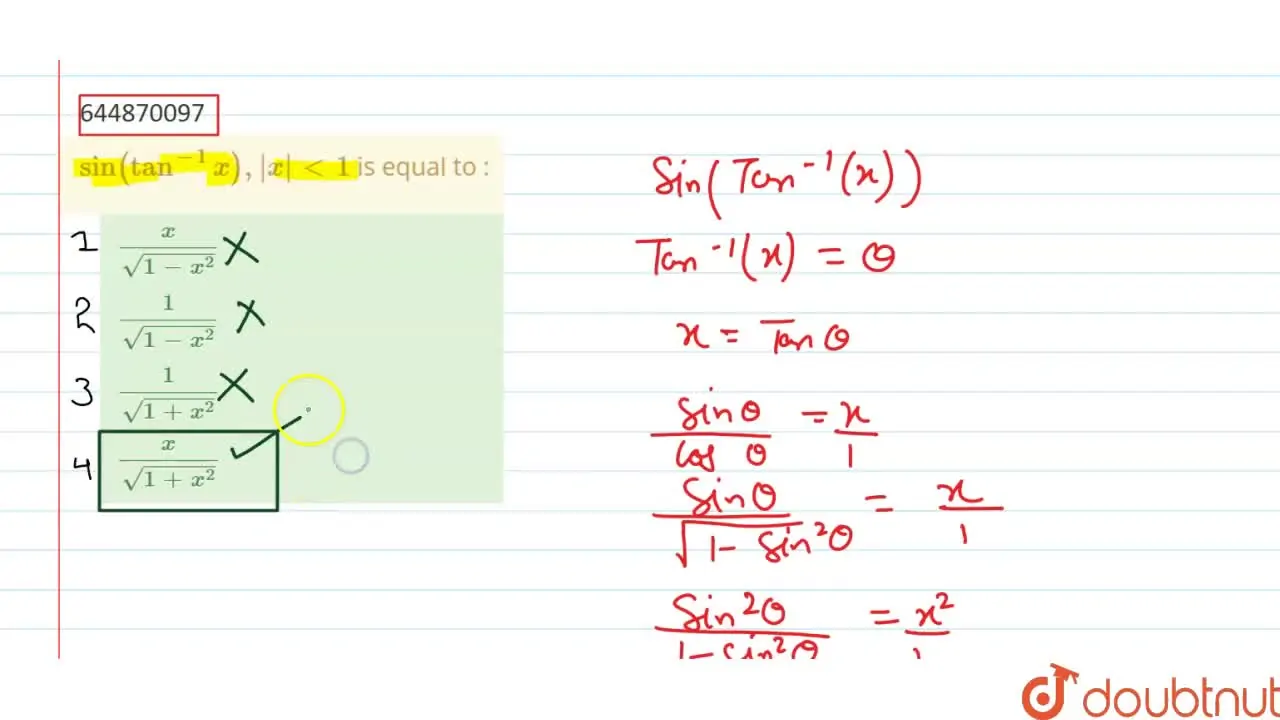 644870097
sin(tan⁻¹ x), |x| < 1 is equal to :
1 x/√(1 − x²) ×
2 1/√(1 − x²) ×
3 1/√(1 + x²) ×
4 x/√(1 + x²) ✓
Sin(Tan⁻¹(x))
Tan⁻¹(x) = θ
x = Tan θ
Sinθ/Cos θ = x/1
Sinθ/√(1 − Sin²θ) = x/1
Sin²θ/(1 − Sin²θ) = x²/1
doubtnut